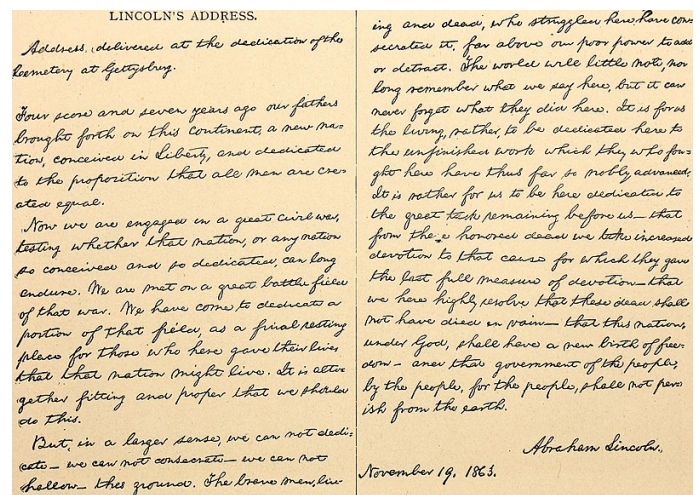 LINCOLN'S ADDRESS.
Address, delivered at the dedication of the
Cemetery at Gettysburg.
Four score and seven years ago our fathers
brought forth on this continent, a new na-
tion, conceived in Liberty, and dedicated
to the proposition that all men are cre-
ated equal.
Now we are engaged in a great civil war,
testing whether that nation, or any nation
so conceived and so dedicated, can long
endure. We are met on a great battle field
of that war. We have come to dedicate a
portion of that field, as a final resting
place for those who here gave their lives
that that nation might live. It is alto-
gether fitting and proper that we should
do this.
But, in a larger sense, we can not dedi-
cate— we can not consecrate— we can not
hallow— this ground. The brave men, liv-
ing and dead, who struggled here, have con-
secrated it, far above our poor power to add
or detract. The world will little note, nor
long remember what we say here, but it can
never forget what they did here. It is for us
the living, rather, to be dedicated here to
the unfinished work which they who fou-
ght here have thus far so nobly advanced.
It is rather for us to be here dedicated to
the great task remaining before us— that
from these honored dead we take increased
devotion to that cause for which they gave
the last full measure of devotion— that
we here highly resolve that these dead shall
not have died in vain— that this nation,
under God, shall have a new birth of free-
dom— and that government of the people,
by the people, for the people, shall not per-
ish from the earth.
Abraham Lincoln.
November 19, 1863.